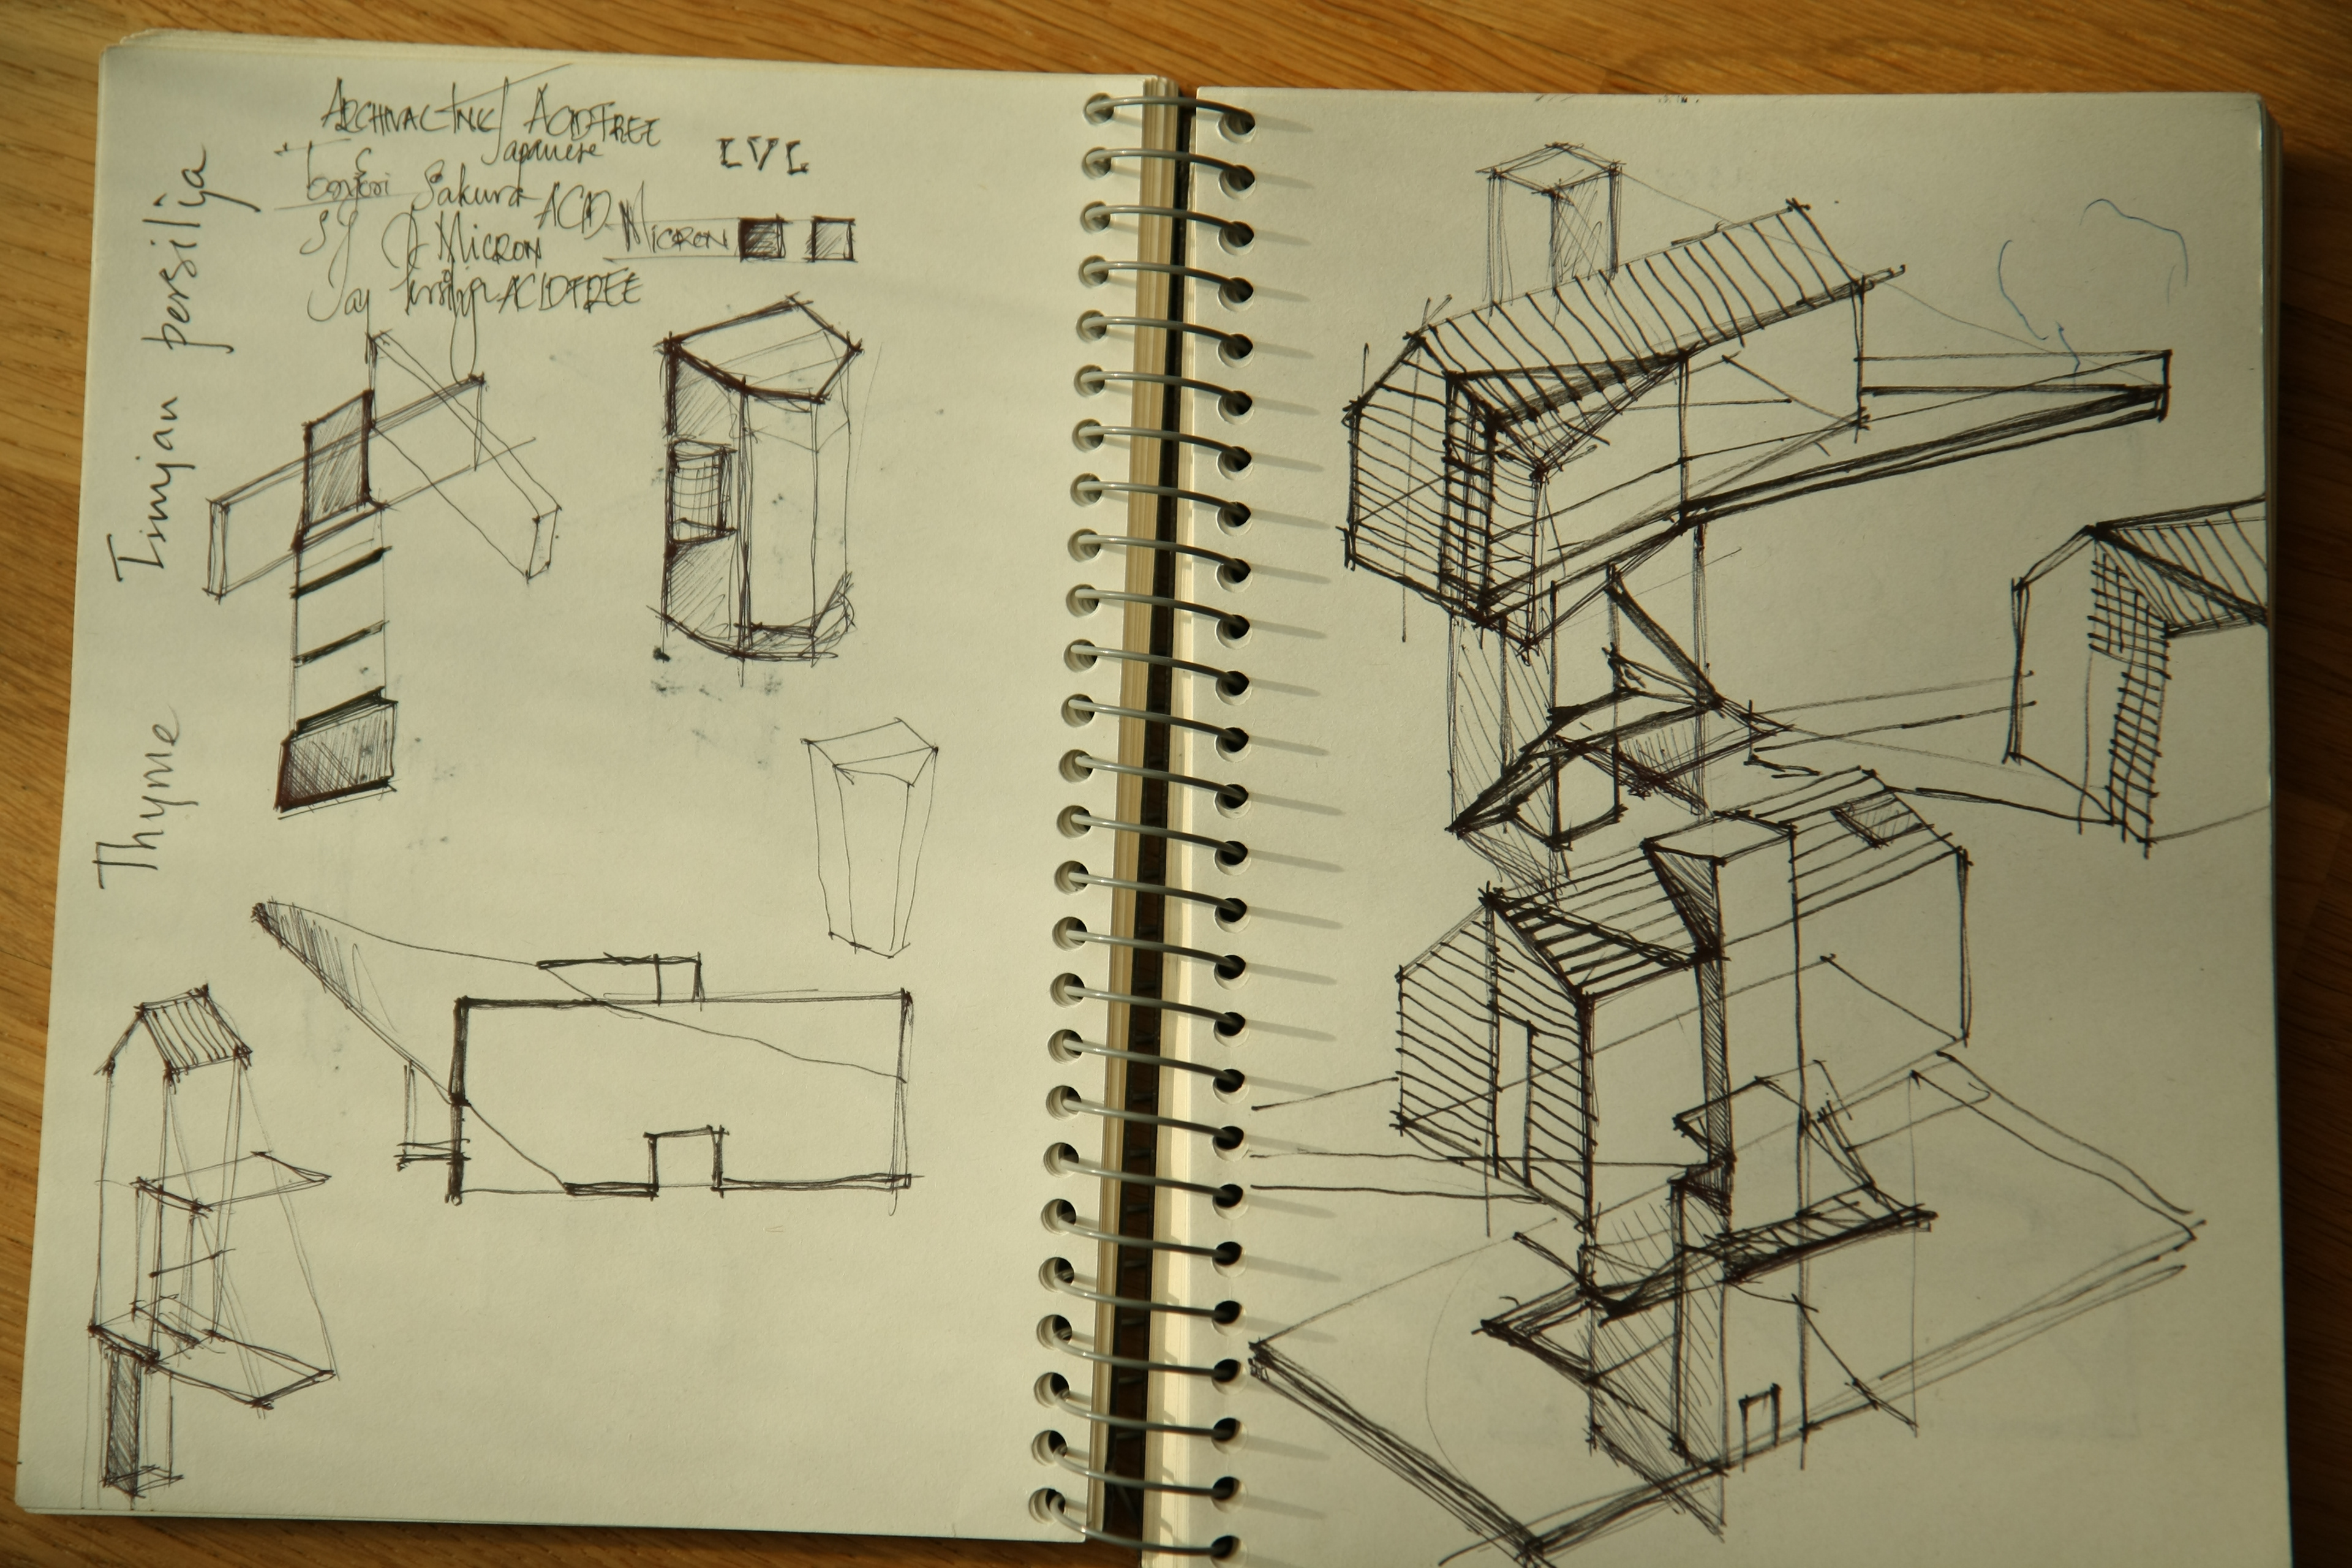 ARCHIVAL INK ACIDFREE
Japanese
Sakura ACID
MICRON MICRON
ACIDFREE
LVL
Timjan persilja
Thyme